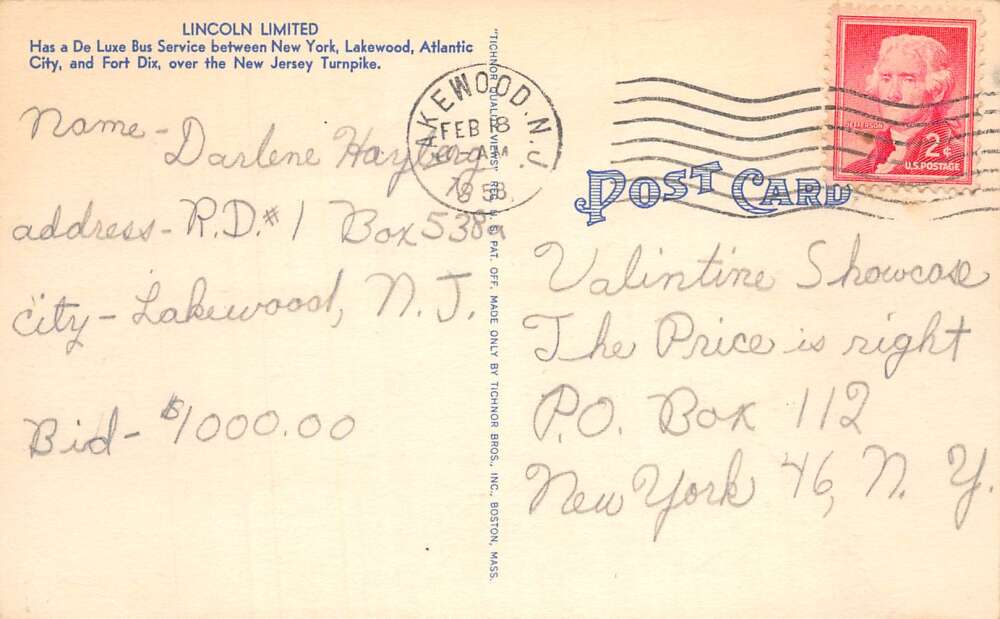 LINCOLN LIMITED
Has a De Luxe Bus Service between New York, Lakewood, Atlantic
City, and Fort Dix, over the New Jersey Turnpike.
Name - Darlene
address - R.D. #1 Box 538a
city - Lakewood, N. J.
Bid - $1000.00
"TICHNOR QUALITY VIEWS" REG. U. S. PAT. OFF. MADE ONLY BY TICHNOR BROS., INC., BOSTON, MASS.
LAKEWOOD, N.J.
FEB 18
AM
POST CARD
JEFFERSON
2¢
U.S. POSTAGE
Valintine Showcase
The Price is right
P.O. Box 112
New York 46, N. Y.